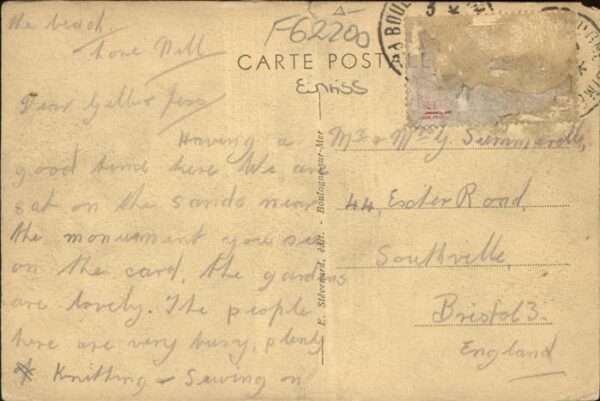 the beach.
Love Nell
Dear
Having a
good time here We are
sat on the sands near
the monument you see
on the card, the gardens
are lovely. The people
here are very busy, plenty
* Knitting - Sewing on
F62200
CARTE POSTALE
E. Stévenard, édit. - Boulogne-sur-Mer
Mr & Mrs G. Summerville,
44, Exeter Road,
Southville,
Bristol 3.
England